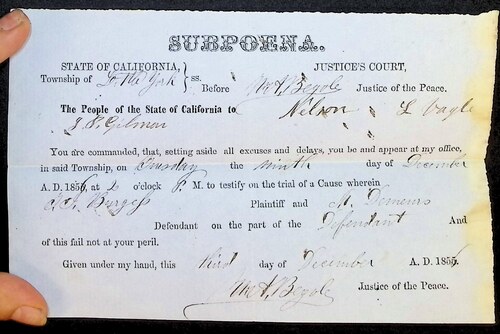 SUBPOENA.
STATE OF CALIFORNIA, JUSTICE'S COURT,
Township of ss. Before Wm A Begole Justice of the Peace.
The People of the State of California to Nelson L Vagle
J. S. Gilman
You are commanded, that, setting aside all excuses and delays, you be and appear at my office,
in said Township, on Tuesday the Ninth day of December
A. D. 1856, at 2 o'clock P. M. to testify on the trial of a Cause wherein
Burgess Plaintiff and M. Demeurs
Defendant on the part of the Defendant And
of this fail not at your peril.
Given under my hand, this third day of December A. D. 1856
Wm A Begole Justice of the Peace.